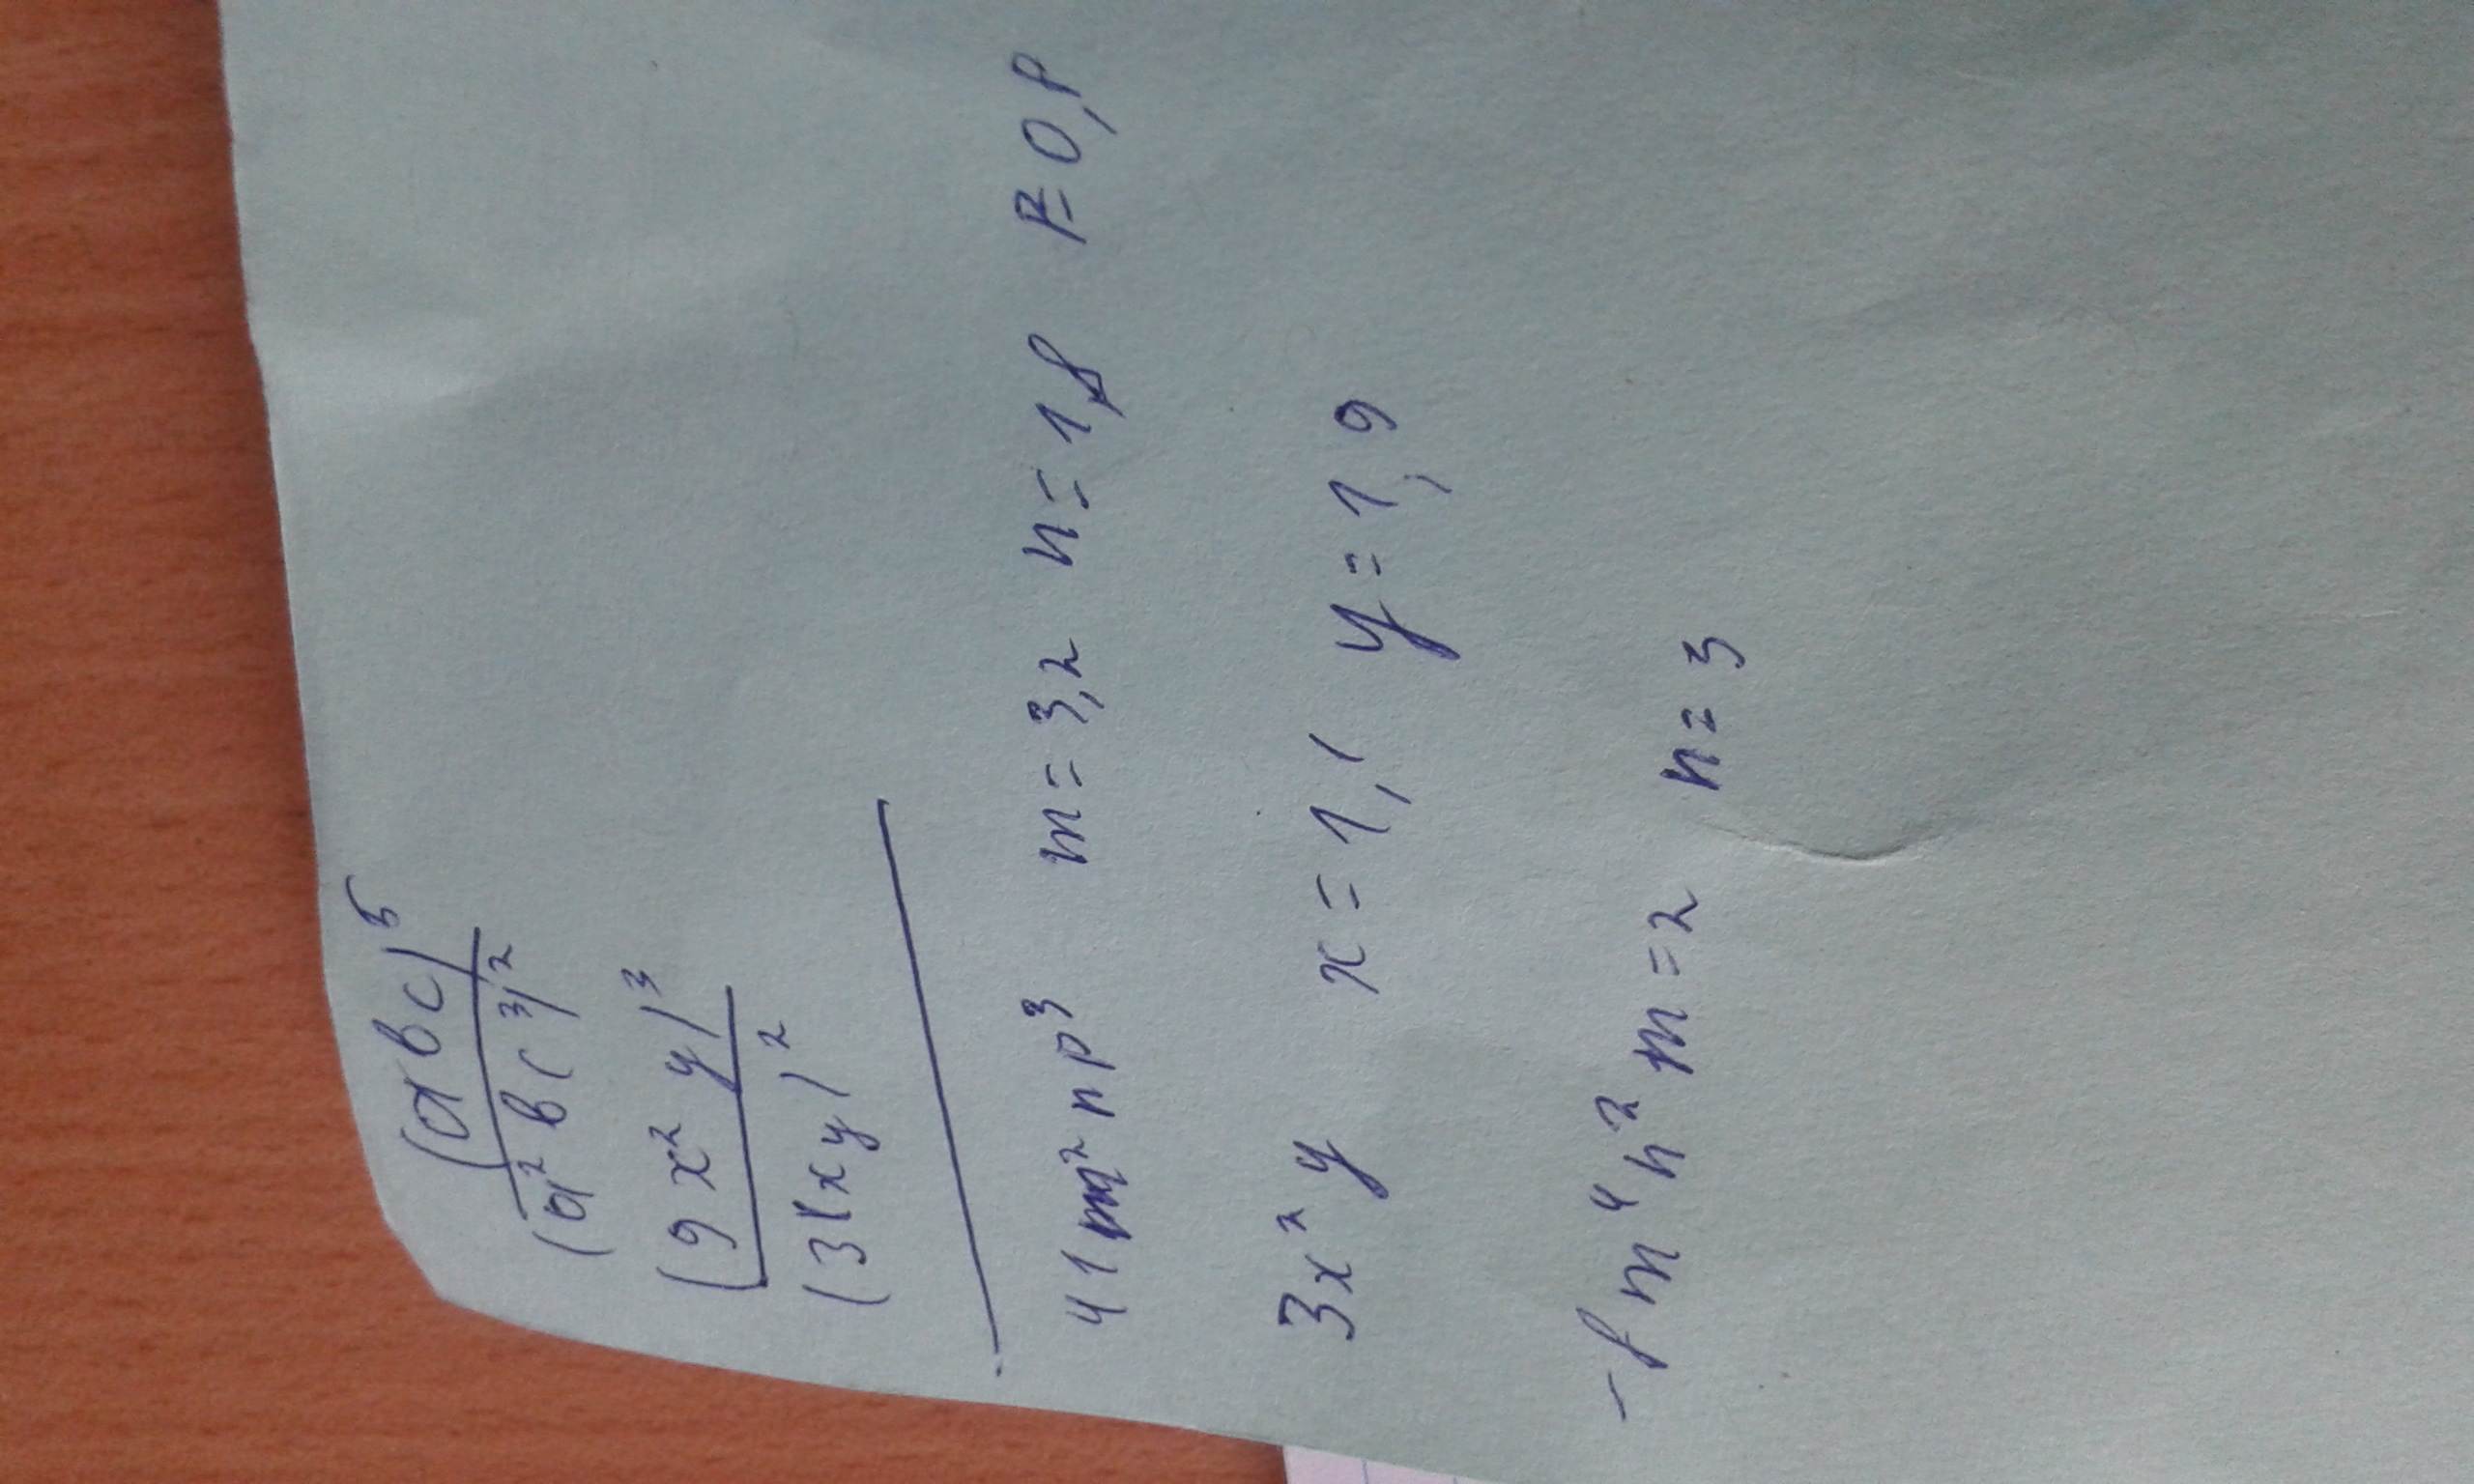 (abc)⁵
(a²bc³)²
(9x²y)³
(3xy)²
41m²np³ m=3,2 n=1,8 P=0,8
3x²y x=1,1 y=1,9
-8m⁴n² m=2 n=3